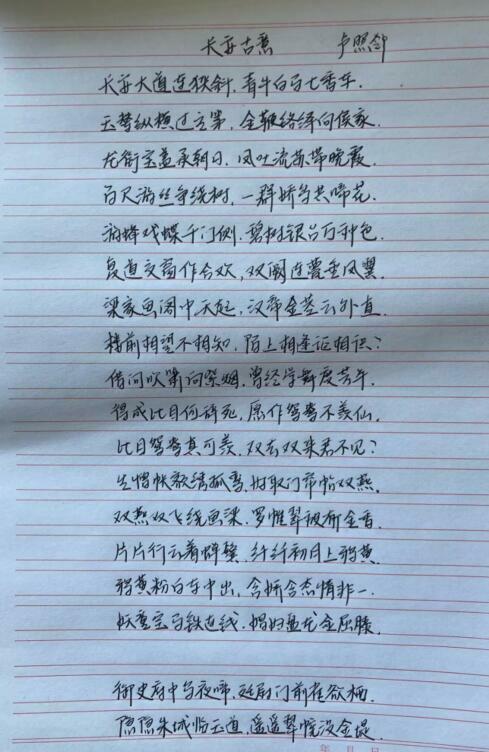 长安古意 卢照邻
长安大道连狭斜,青牛白马七香车.
玉辇纵横过主第,金鞭络绎向侯家.
龙衔宝盖承朝日,凤吐流苏带晚霞.
百尺游丝争绕树,一群娇鸟共啼花.
游蜂戏蝶千门侧.碧树银台万种色.
复道交窗作合欢,双阙连甍垂凤翼.
梁家画阁中天起,汉帝金茎云外直.
楼前相望不相知,陌上相逢讵相识?
借问吹箫向紫烟,曾经学舞度芳年.
得成比目何辞死,愿作鸳鸯不羡仙.
比目鸳鸯真可羡,双去双来君不见?
生憎帐额绣孤鸾,好取门帘帖双燕.
双燕双飞绕画梁.罗帷翠被郁金香.
片片行云着蝉鬓,纤纤初月上鸦黄.
鸦黄粉白车中出,含娇含态情非一.
妖童宝马铁连钱,娼妇盘龙金屈膝.
御史府中乌夜啼,廷尉门前雀欲栖.
隐隐朱城临玉道,遥遥翠幰没金堤.
年 月 日